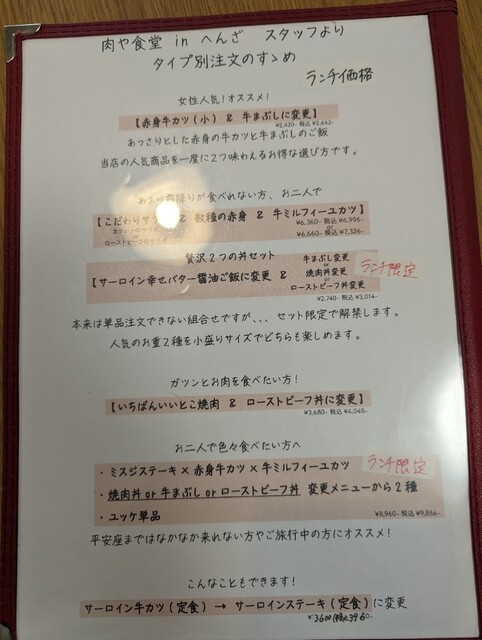 肉や食堂 in へんざ スタッフより
タイプ別注文のすゝめ
ランチ価格
女性人気!オススメ!
【赤身牛カツ(小) & 牛まぶしに変更】
¥2,420- 税込 ¥2,662-
あっさりとした赤身の牛カツと牛まぶしのご飯
当店の人気商品を一度に2つ味わえるお得な選び方です。
霜降りが食べれない方、お二人で
【こだわりサラダ & 数種の赤身 & 牛ミルフィーユカツ】
¥6,360- 税込 ¥6,996-
or
ローストビーフのサラダ
¥6,660- 税込 ¥7,326-
贅沢2つの丼セット
【サーロイン幸せバター醤油ご飯に変更 &
牛まぶし変更
or
焼肉丼変更
or
ローストビーフ丼変更
ランチ限定
¥2,740- 税込 ¥3,014-
本来は単品注文できない組合せですが、、、セット限定で解禁します。
人気のお重2種を小盛りサイズでどちらも楽しめます。
ガツンとお肉を食べたい方!
【いちばんいいとこ焼肉 & ローストビーフ丼に変更】
¥3,680- 税込 ¥4,048-
お二人で色々食べたい方へ
・ミスジステーキ×赤身牛カツ×牛ミルフィーユカツ
ランチ限定
・焼肉丼 or 牛まぶし or ローストビーフ丼 変更メニューから2種
・ユッケ単品
¥8,960- 税込 ¥9,856-
平安座まではなかなか来れない方やご旅行中の方にオススメ!
こんなこともできます!
サーロイン牛カツ(定食) → サーロインステーキ(定食)に変更
¥3600(税込3960-